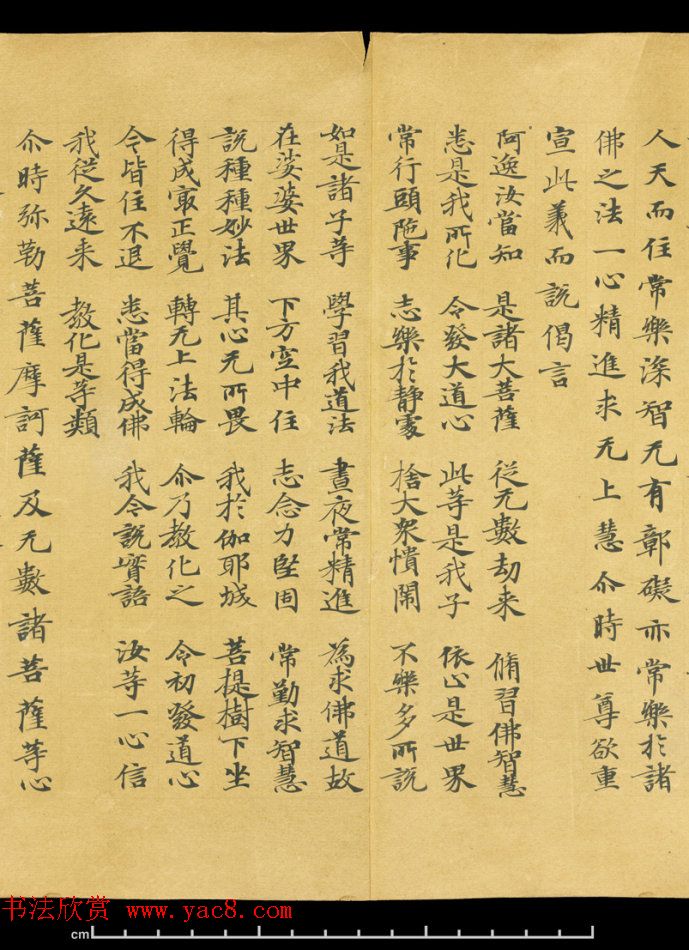 人天而住常樂深智无有鄣礙亦常樂於諸
佛之法一心精進求无上慧尒時世尊欲重
宣此義而說偈言
阿逸汝當知 是諸大菩薩 從无數劫来 脩習佛智慧
悉是我所化 令發大道心 此等是我子 依止是世界
常行頭陁事 志樂於静處 捨大衆憒閙 不樂多所說
如是諸子等 學習我道法 晝夜常精進 為求佛道故
在娑婆世界 下方空中住 志念力堅固 常勤求智慧
說種種妙法 其心无所畏 我於伽耶城 菩提樹下坐
得成冣正覺 轉无上法輪 尒乃教化之 令初發道心
今皆住不退 悉當得成佛 我今說實語 汝等一心信
我從久遠来 教化是等類
尒時弥勒菩薩摩訶薩及无數諸菩薩等心
书法欣赏 www.yac8.com
cm